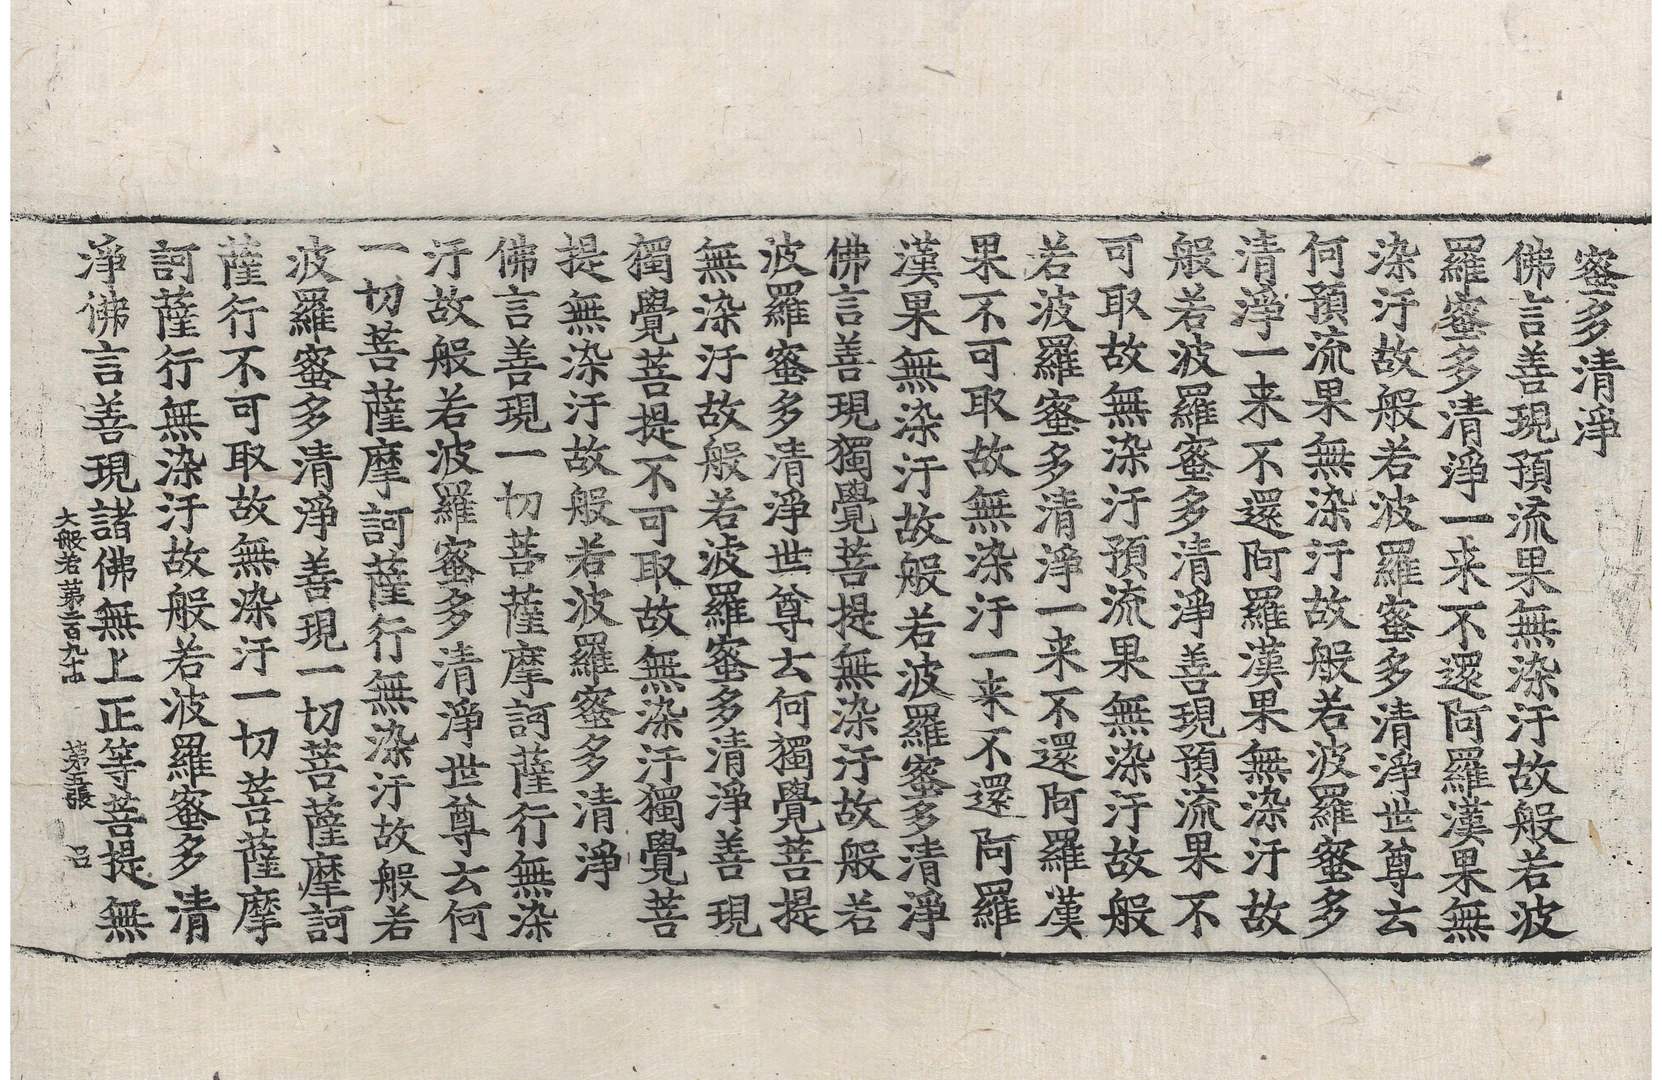 蜜多清淨
佛言善現預流果無染汙故般若波
羅蜜多清淨一来不還阿羅漢果無
染汙故般若波羅蜜多清淨世尊云
何預流果無染汙故般若波羅蜜多
清淨一来不還阿羅漢果無染汙故
般若波羅蜜多清淨善現預流果不
可取故無染汙預流果無染汙故般
若波羅蜜多清淨一来不還阿羅漢
果不可取故無染汙一来不還阿羅
漢果無染汙故般若波羅蜜多清淨
佛言善現獨覺菩提無染汙故般若
波羅蜜多清淨世尊云何獨覺菩提
無染汙故般若波羅蜜多清淨善現
獨覺菩提不可取故無染汙獨覺菩
提無染汙故般若波羅蜜多清淨
佛言善現一切菩薩摩訶薩行無染
汙故般若波羅蜜多清淨世尊云何
一切菩薩摩訶薩行無染汙故般若
波羅蜜多清淨善現一切菩薩摩訶
薩行不可取故無染汙一切菩薩摩
訶薩行無染汙故般若波羅蜜多清
淨佛言善現諸佛無上正等菩提無
大般若第二百九十 第五張 呂